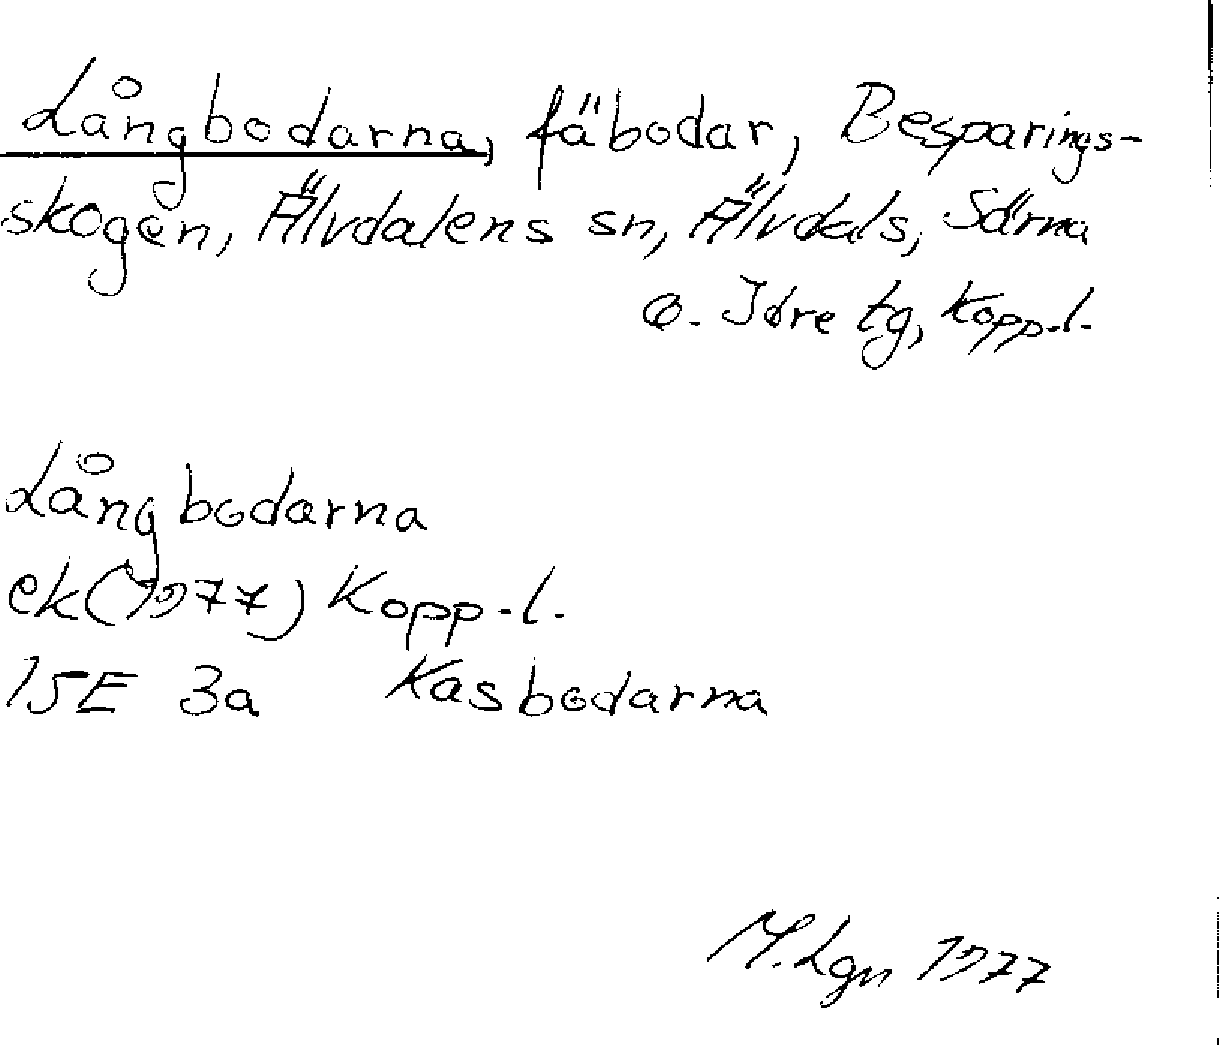 Långbodarna, fäbodar, Besparings-
skogen, Älvdalens sn, Älvdals, Särna
o. Idre tg, Kopp.l.
Långbodarna
ek(1977) Kopp.l.
15E 3a Kasbodarna
M.Lgn 1977